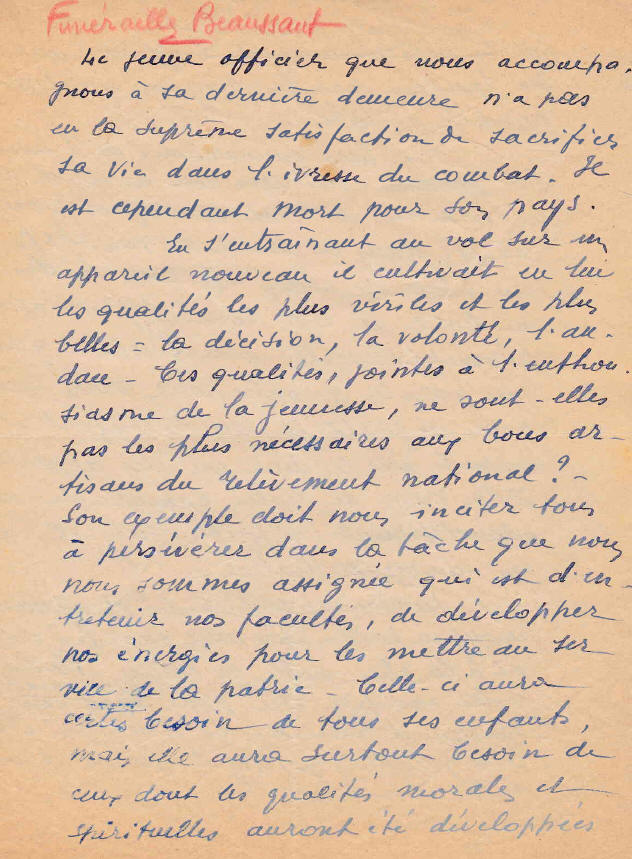 Funérailles Beaussaut
Le jeune officier que nous accompa-
gnons à sa dernière demeure n'a pas
eu la suprême satisfaction de sacrifier
sa vie dans l'ivresse du combat. Il
est cependant mort pour son pays.
En s'entraînant au vol sur un
appareil nouveau il cultivait en lui
les qualités les plus viriles et les plus
belles = la décision, la volonté, l'au-
dace - Ces qualités, jointes à l'enthou-
siasme de la jeunesse, ne sont-elles
pas les plus nécessaires aux bons ar-
tisans du relèvement national ? -
Son exemple doit nous inciter tous
à persévérer dans la tâche que nous
nous sommes assignée qui est d'en-
tretenir nos facultés, de développer
nos énergies pour les mettre au ser-
vice de la patrie - Celle-ci aura
certes besoin de tous ses enfants,
mais elle aura surtout besoin de
ceux dont les qualités morales et
spirituelles auront été développées